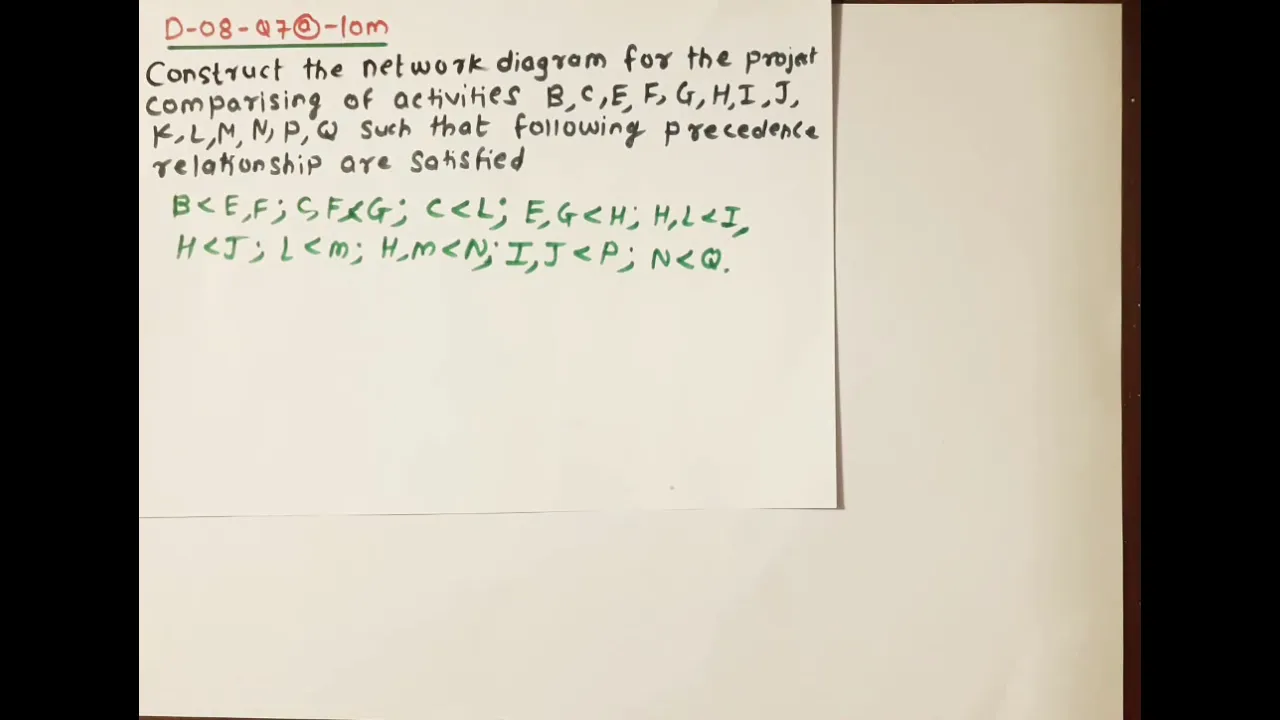 D-08-Q7ⓐ-10m
Construct the network diagram for the projet
comparising of activities B, C, E, F, G, H, I, J,
K, L, M, N, P, Q such that following precedence
relationship are satisfied
B < E, F; C, F < G; C < L; E, G < H; H, L < I,
H < J; L < m; H, m < N; I, J < P; N < Q.